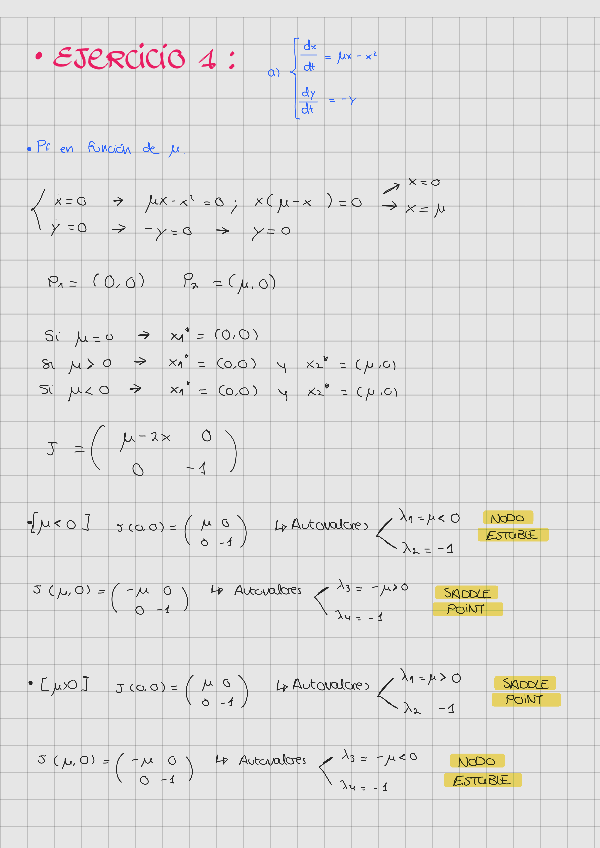 • EJERCICIO 1 :
a) { dx/dt = μx - x²
dy/dt = -y
• Pf en función de μ.
{ x = 0 → μx - x² = 0 ; x(μ - x ) = 0 → x = 0
→ x = μ
y = 0 → -y = 0 → y = 0
P₁ = (0,0) P₂ = (μ,0)
Si μ = 0 → x₁* = (0,0)
Si μ > 0 → x₁* = (0,0) y x₂* = (μ,0)
Si μ < 0 → x₁* = (0,0) y x₂* = (μ,0)
J = ( μ-2x 0
0 -1 )
• [μ<0] J(0,0) = ( μ 0 ↳ Autovalores λ₁ = μ < 0 NODO
0 -1 ) λ₂ = -1 ESTABLE
J(μ,0) = ( -μ 0 ↳ Autovalores λ₃ = -μ>0 SADDLE
0 -1 ) λ₄ = -1 POINT
• [μ>0] J(0,0) = ( μ 0 ↳ Autovalores λ₁ = μ > 0 SADDLE
0 -1 ) λ₂ -1 POINT
J(μ,0) = ( -μ 0 ↳ Autovalores λ₃ = -μ<0 NODO
0 -1 ) λ₄ = -1 ESTABLE